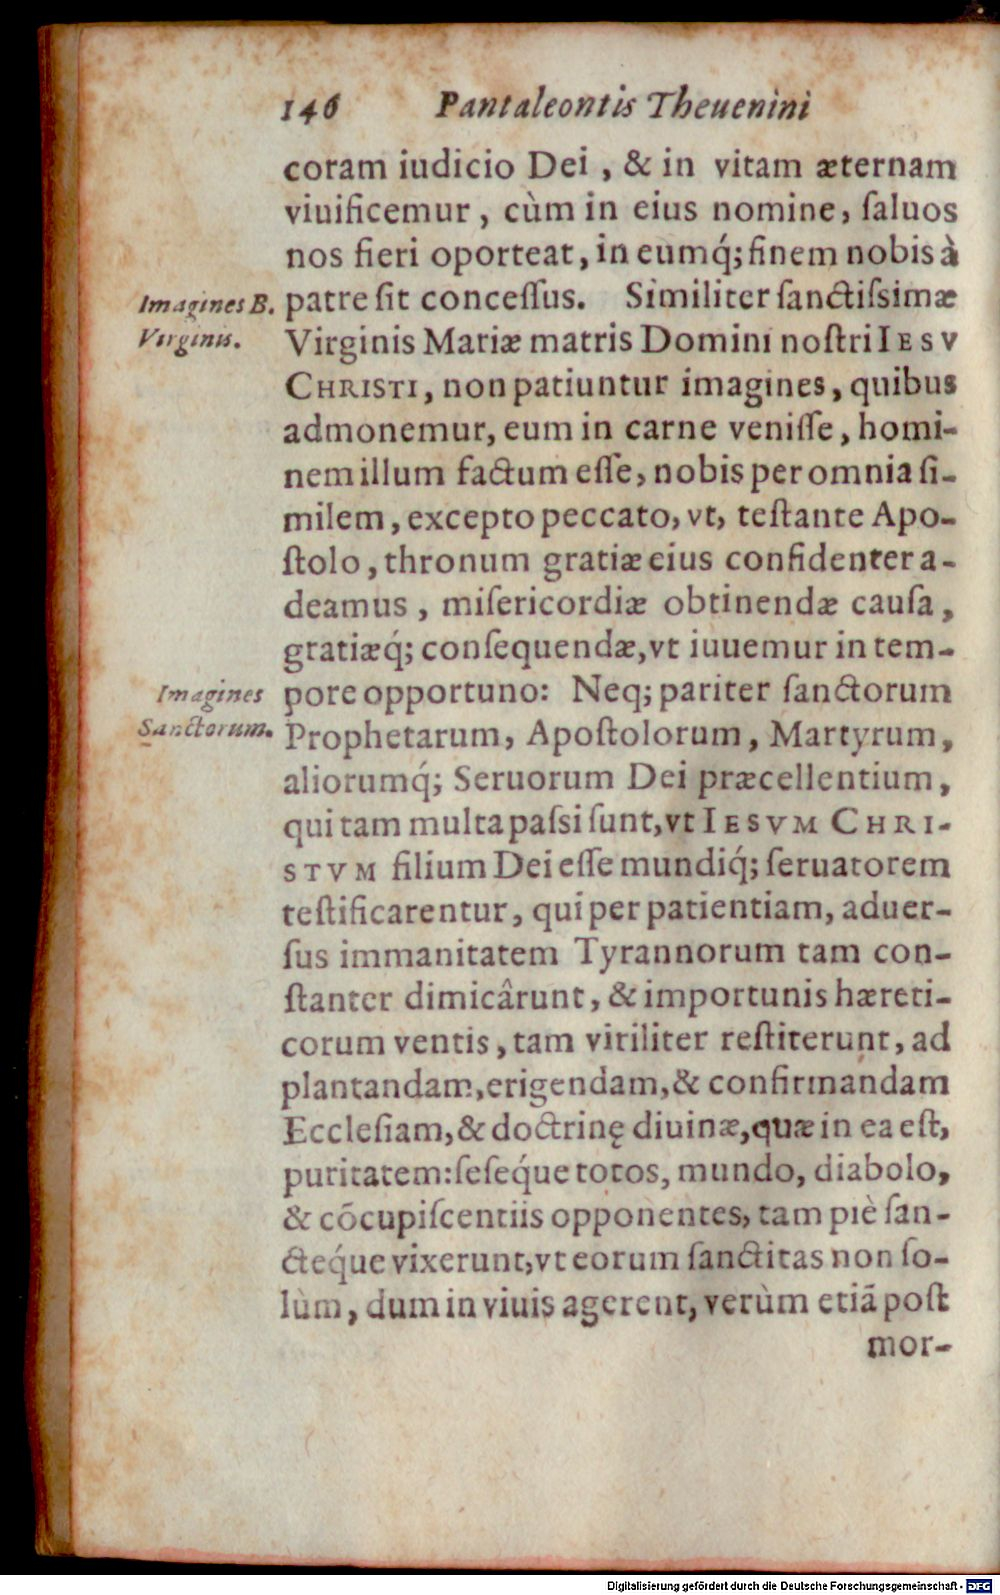 146 Pantaleontis Theuenini
coram iudicio Dei , & in vitam æternam
viuificemur , cùm in eius nomine, ſaluos
nos fieri oporteat, in eumq́; finem nobis à
Imagines B.
Virginis.
patre ſit conceſſus. Similiter ſanctiſsimæ
Virginis Mariæ matris Domini noſtri IESV
CHRISTI, non patiuntur imagines, quibus
admonemur, eum in carne veniſſe, homi-
nem illum factum eſſe, nobis per omnia ſi-
milem, excepto peccato, vt, teſtante Apo-
ſtolo, thronum gratiæ eius confidenter a-
deamus , miſericordiæ obtinendæ cauſa,
gratiæq́; conſequendæ, vt iuuemur in tem-
Imagines
Sanctorum.
pore opportuno: Neq; pariter ſanctorum
Prophetarum, Apoſtolorum, Martyrum,
aliorumq́; Seruorum Dei præcellentium,
qui tam multa paſsi ſunt, vt IESVM CHRI-
STVM filium Dei eſſe mundiq́; ſeruatorem
teſtificarentur, qui per patientiam, aduer-
ſus immanitatem Tyrannorum tam con-
ſtanter dimicârunt, & importunis hæreti-
corum ventis, tam viriliter reſtiterunt, ad
plantandam, erigendam, & confirmandam
Eccleſiam, & doctrinę diuinæ, quæ in ea eſt,
puritatem: ſeſeq́ue totos, mundo, diabolo,
& cõcupiſcentiis opponentes, tam piè ſan-
cteq́ue vixerunt, vt eorum ſanctitas non ſo-
lùm, dum in viuis agerent, verùm etiã poſt
mor-
Digitalisierung gefördert durch die Deutsche Forschungsgemeinschaft - DFG